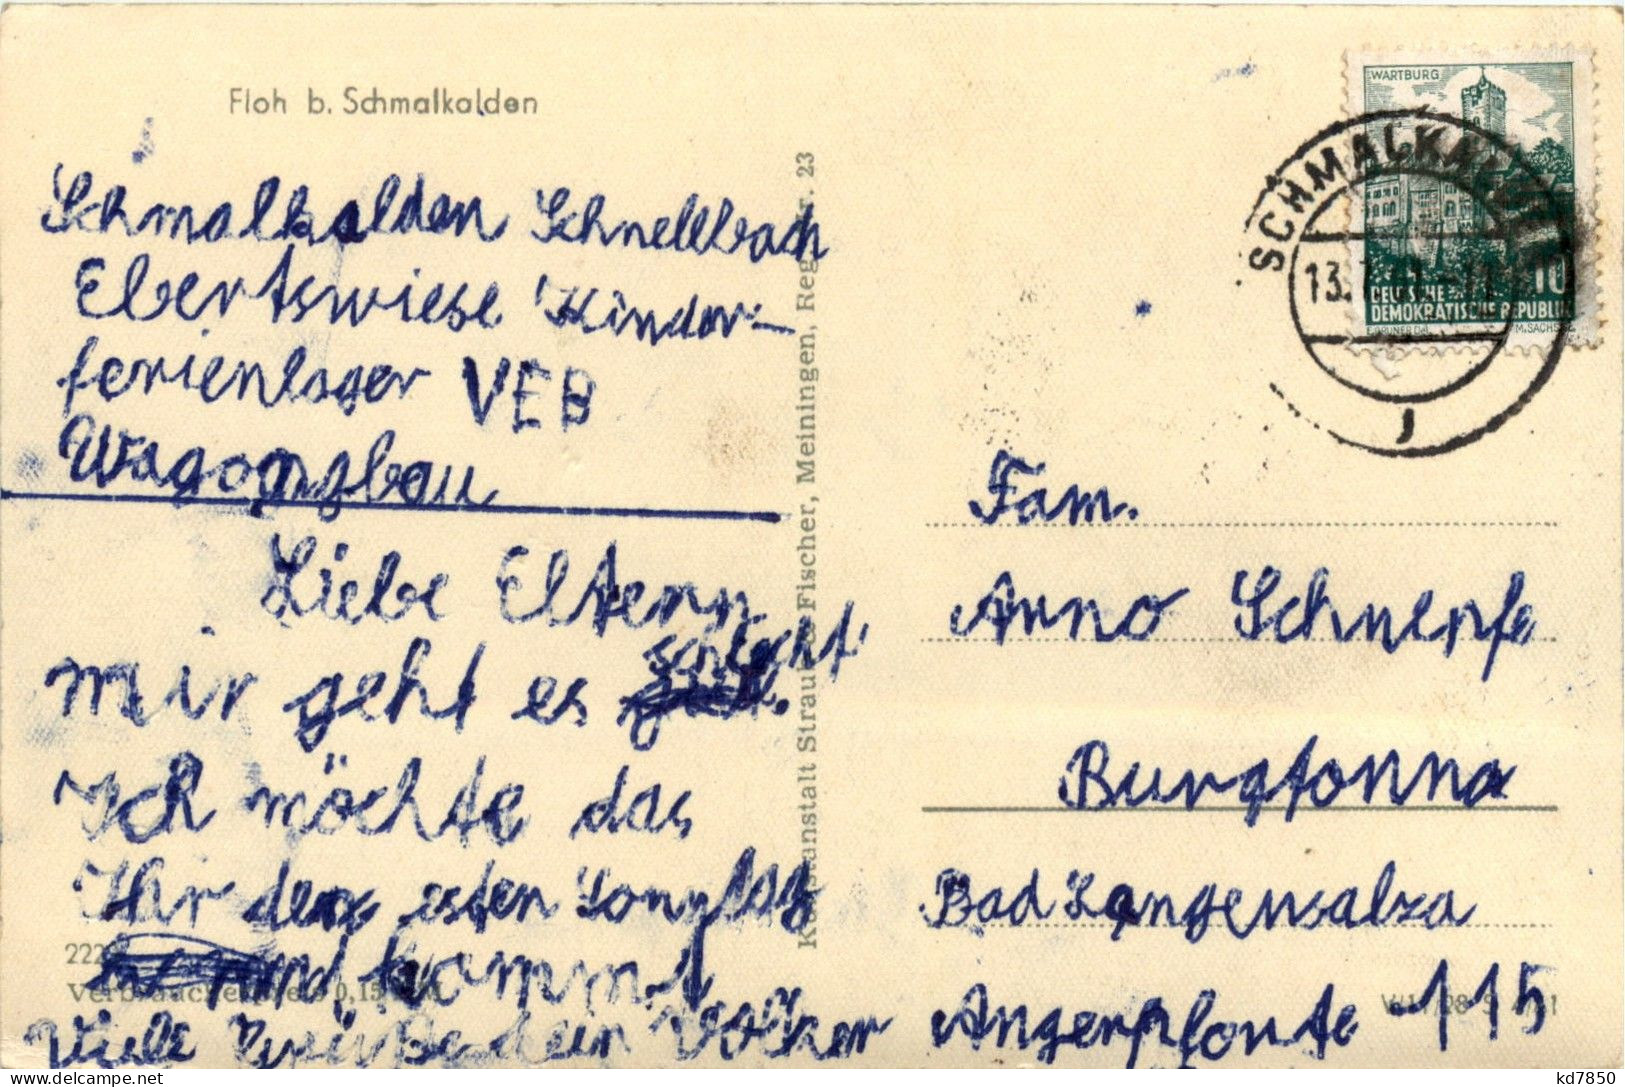 Floh b. Schmalkalden
Schmalkalden Schnellbach
Ebertswiese Kinder-
ferienlager VEB
Wagongbau
Liebe Elternn
mir geht es schlecht.
Ich möchte das
Ihr den esten Sonntag
kommt
Viele Grüße dein Volker
222
Verbraucherpreis 0,15 DM
Kunstanstalt Straub & Fischer, Meiningen, Reg.-Nr. 23
WARTBURG
10
DEUTSCHE
DEMOKRATISCHE REPUBLIK
M. SACHS
SCHMALKALDEN
13.
Fam.
Anno Schnepfe
Burgtonna
Bad Langensalza
Angerpfonte 115
kd7850